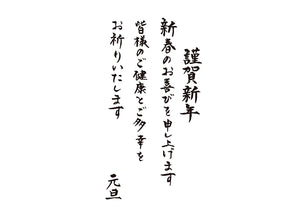 謹賀新年
新春のお喜びを申し上げます
皆様のご健康とご多幸を
お祈りいたします
元旦